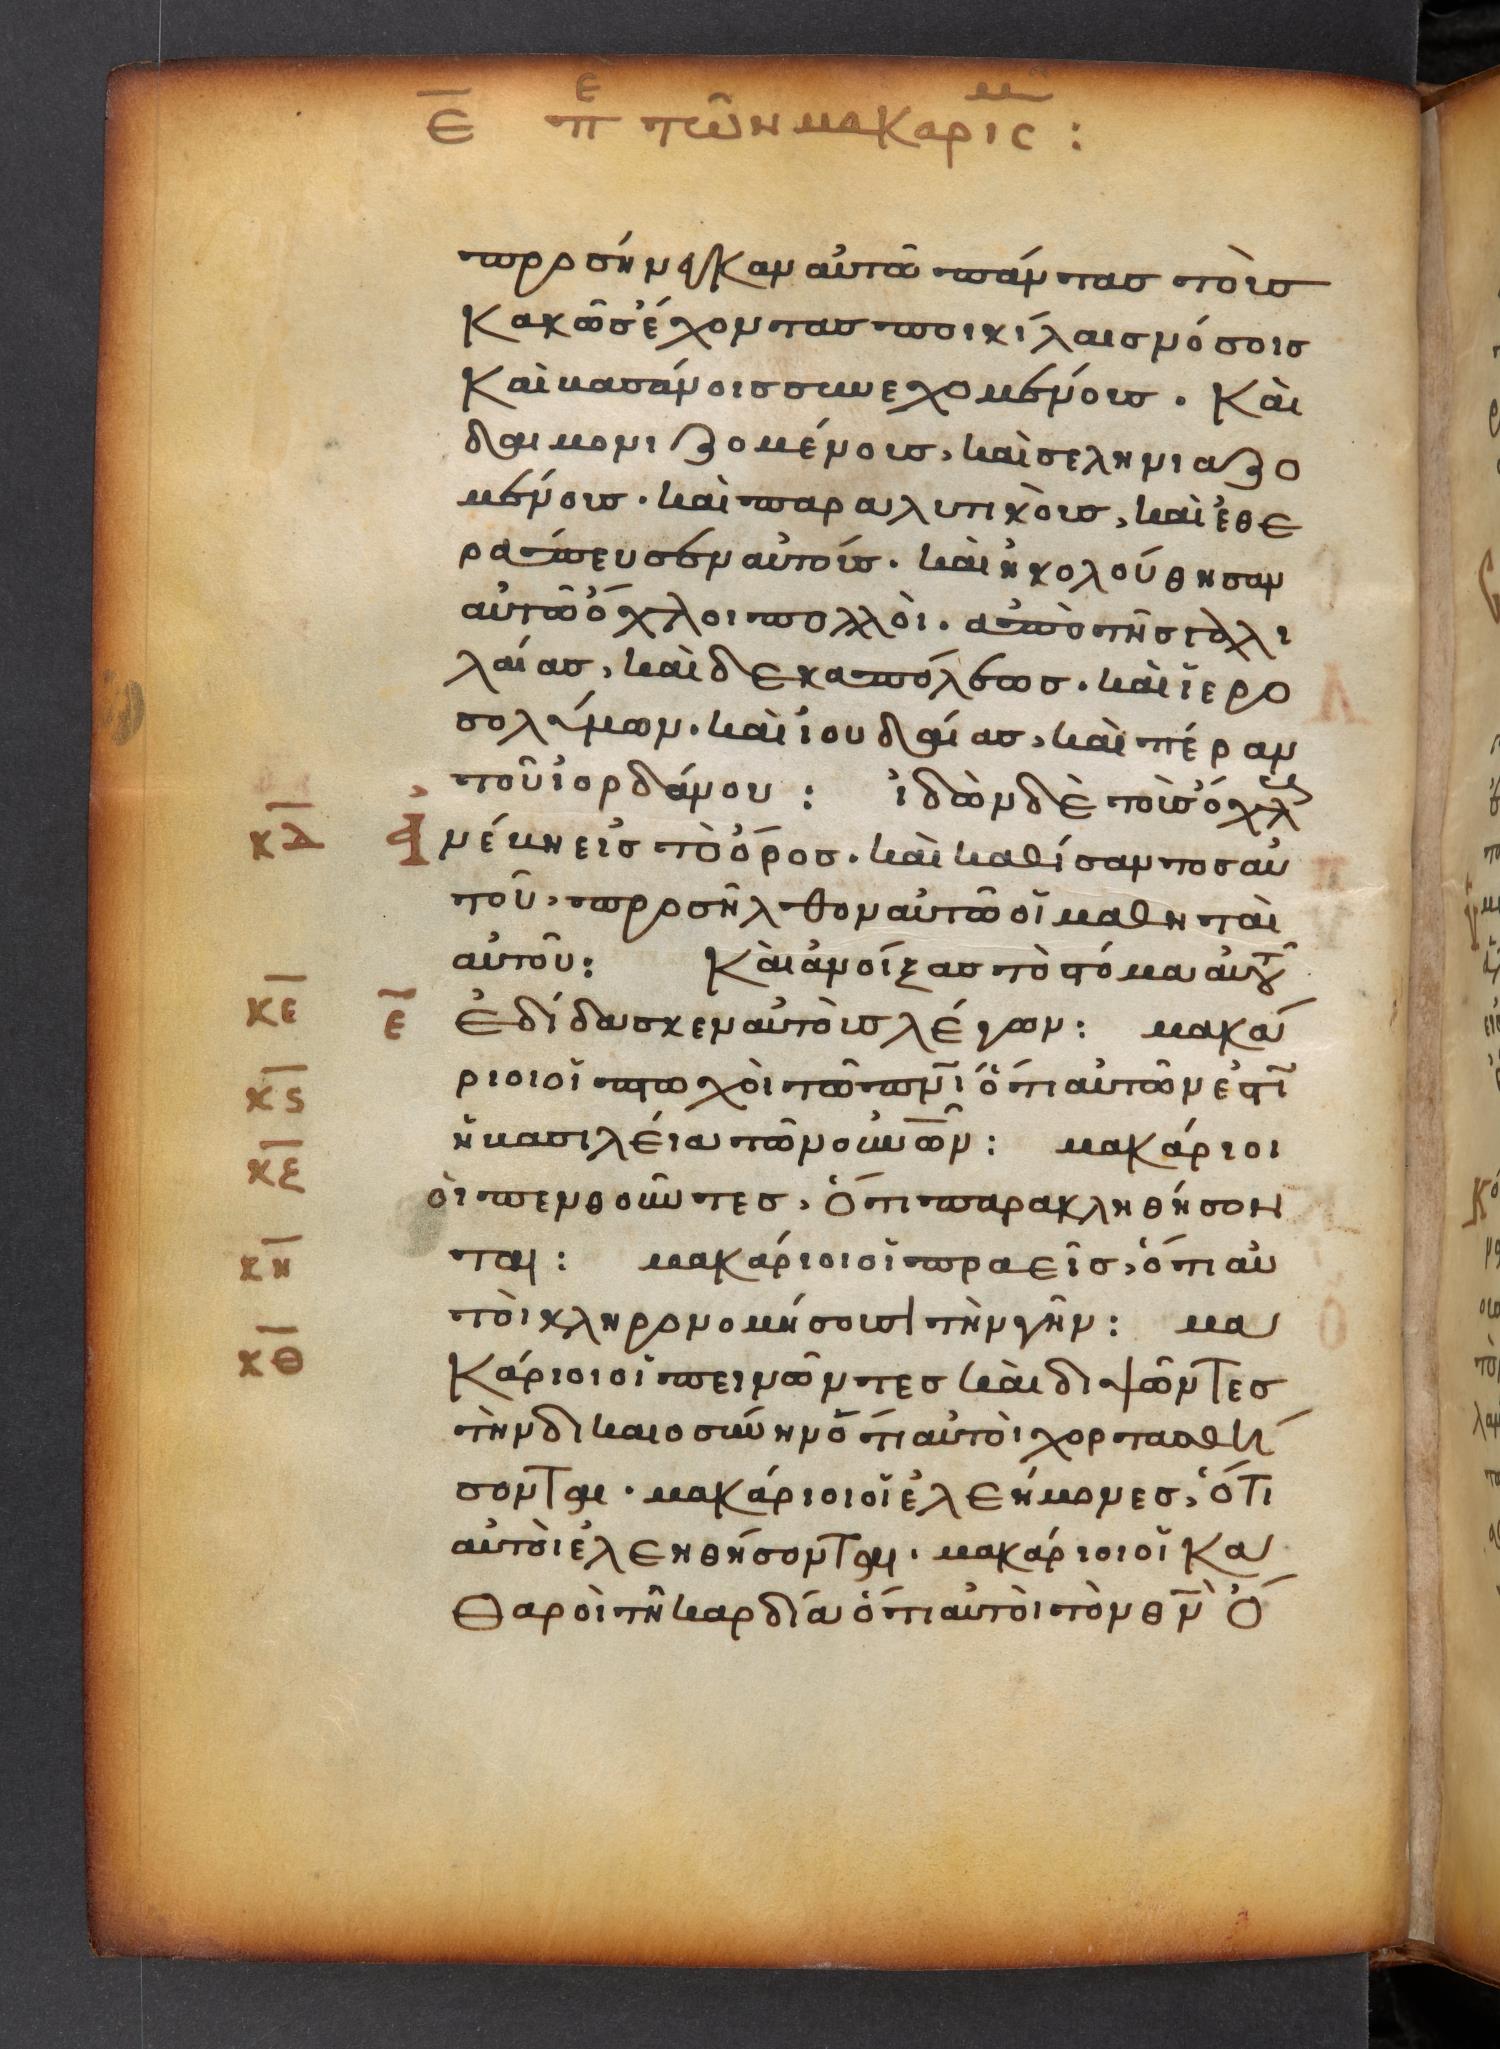 ε̅ πε τῶν μακαρισμ :
προσήνεγκαν αὐτῶ πάντας τοὺς
κακῶς ἔχοντας ποικίλαις νόσοις
καὶ βασάνοις συνεχομένους . καὶ
δαιμονιζομένους, καὶ σεληνιαζο
μένους . καὶ παραλυτικοὺς, καὶ ἐθε
ράπευσεν αὐτούς . καὶ ἠκολούθησαν
αὐτῶ ὄχλοι πολλοὶ . ἀπὸ τῆς γαλι
λαίας, καὶ δεκαπόλεως . καὶ ἱερο
σολύμων . καὶ ἰουδαίας, καὶ πέραν
τοῦ ἰορδάνου : ἰδὼν δὲ τοὺς ὄχλους
κ̅δ̅ ἀνέβη εἰς τὸ ὄρος . καὶ καθίσαντος αὐ
τοῦ, προσῆλθον αὐτῶ οἱ μαθηταὶ
αὐτοῦ : καὶ ἀνοίξας τὸ στόμα αὐτοῦ
κ̅ε̅ ε̅ ἐδίδασκεν αὐτοὺς λέγων : μακά
κ̅ς̅ ριοι οἱ πτωχοὶ τῶ π̅ν̅ι̅ ὅτι αὐτῶν ἐστὶ
κ̅ζ̅ ἡ βασιλεία τῶν ο̅υ̅ν̅ω̅ν̅ : μακάριοι
οἱ πενθοῦντες, ὅτι παρακληθήσον
κ̅η̅ ται : μακάριοι οἱ πραεῖς, ὅτι αὐ
τοὶ κληρονομήσουσι τὴν γῆν : μα
κ̅θ̅ κάριοι οἱ πεινῶντες καὶ διψῶντες
τὴν δικαιοσύνην ὅτι αὐτοὶ χορτασθή
σονται . μακάριοι οἱ ἐλεήμονες, ὅτι
αὐτοὶ ἐλεηθήσονται . μακάριοι οἱ κα
θαροὶ τῆ καρδία ὅτι αὐτοὶ τὸν θ̅ν̅ ὄ